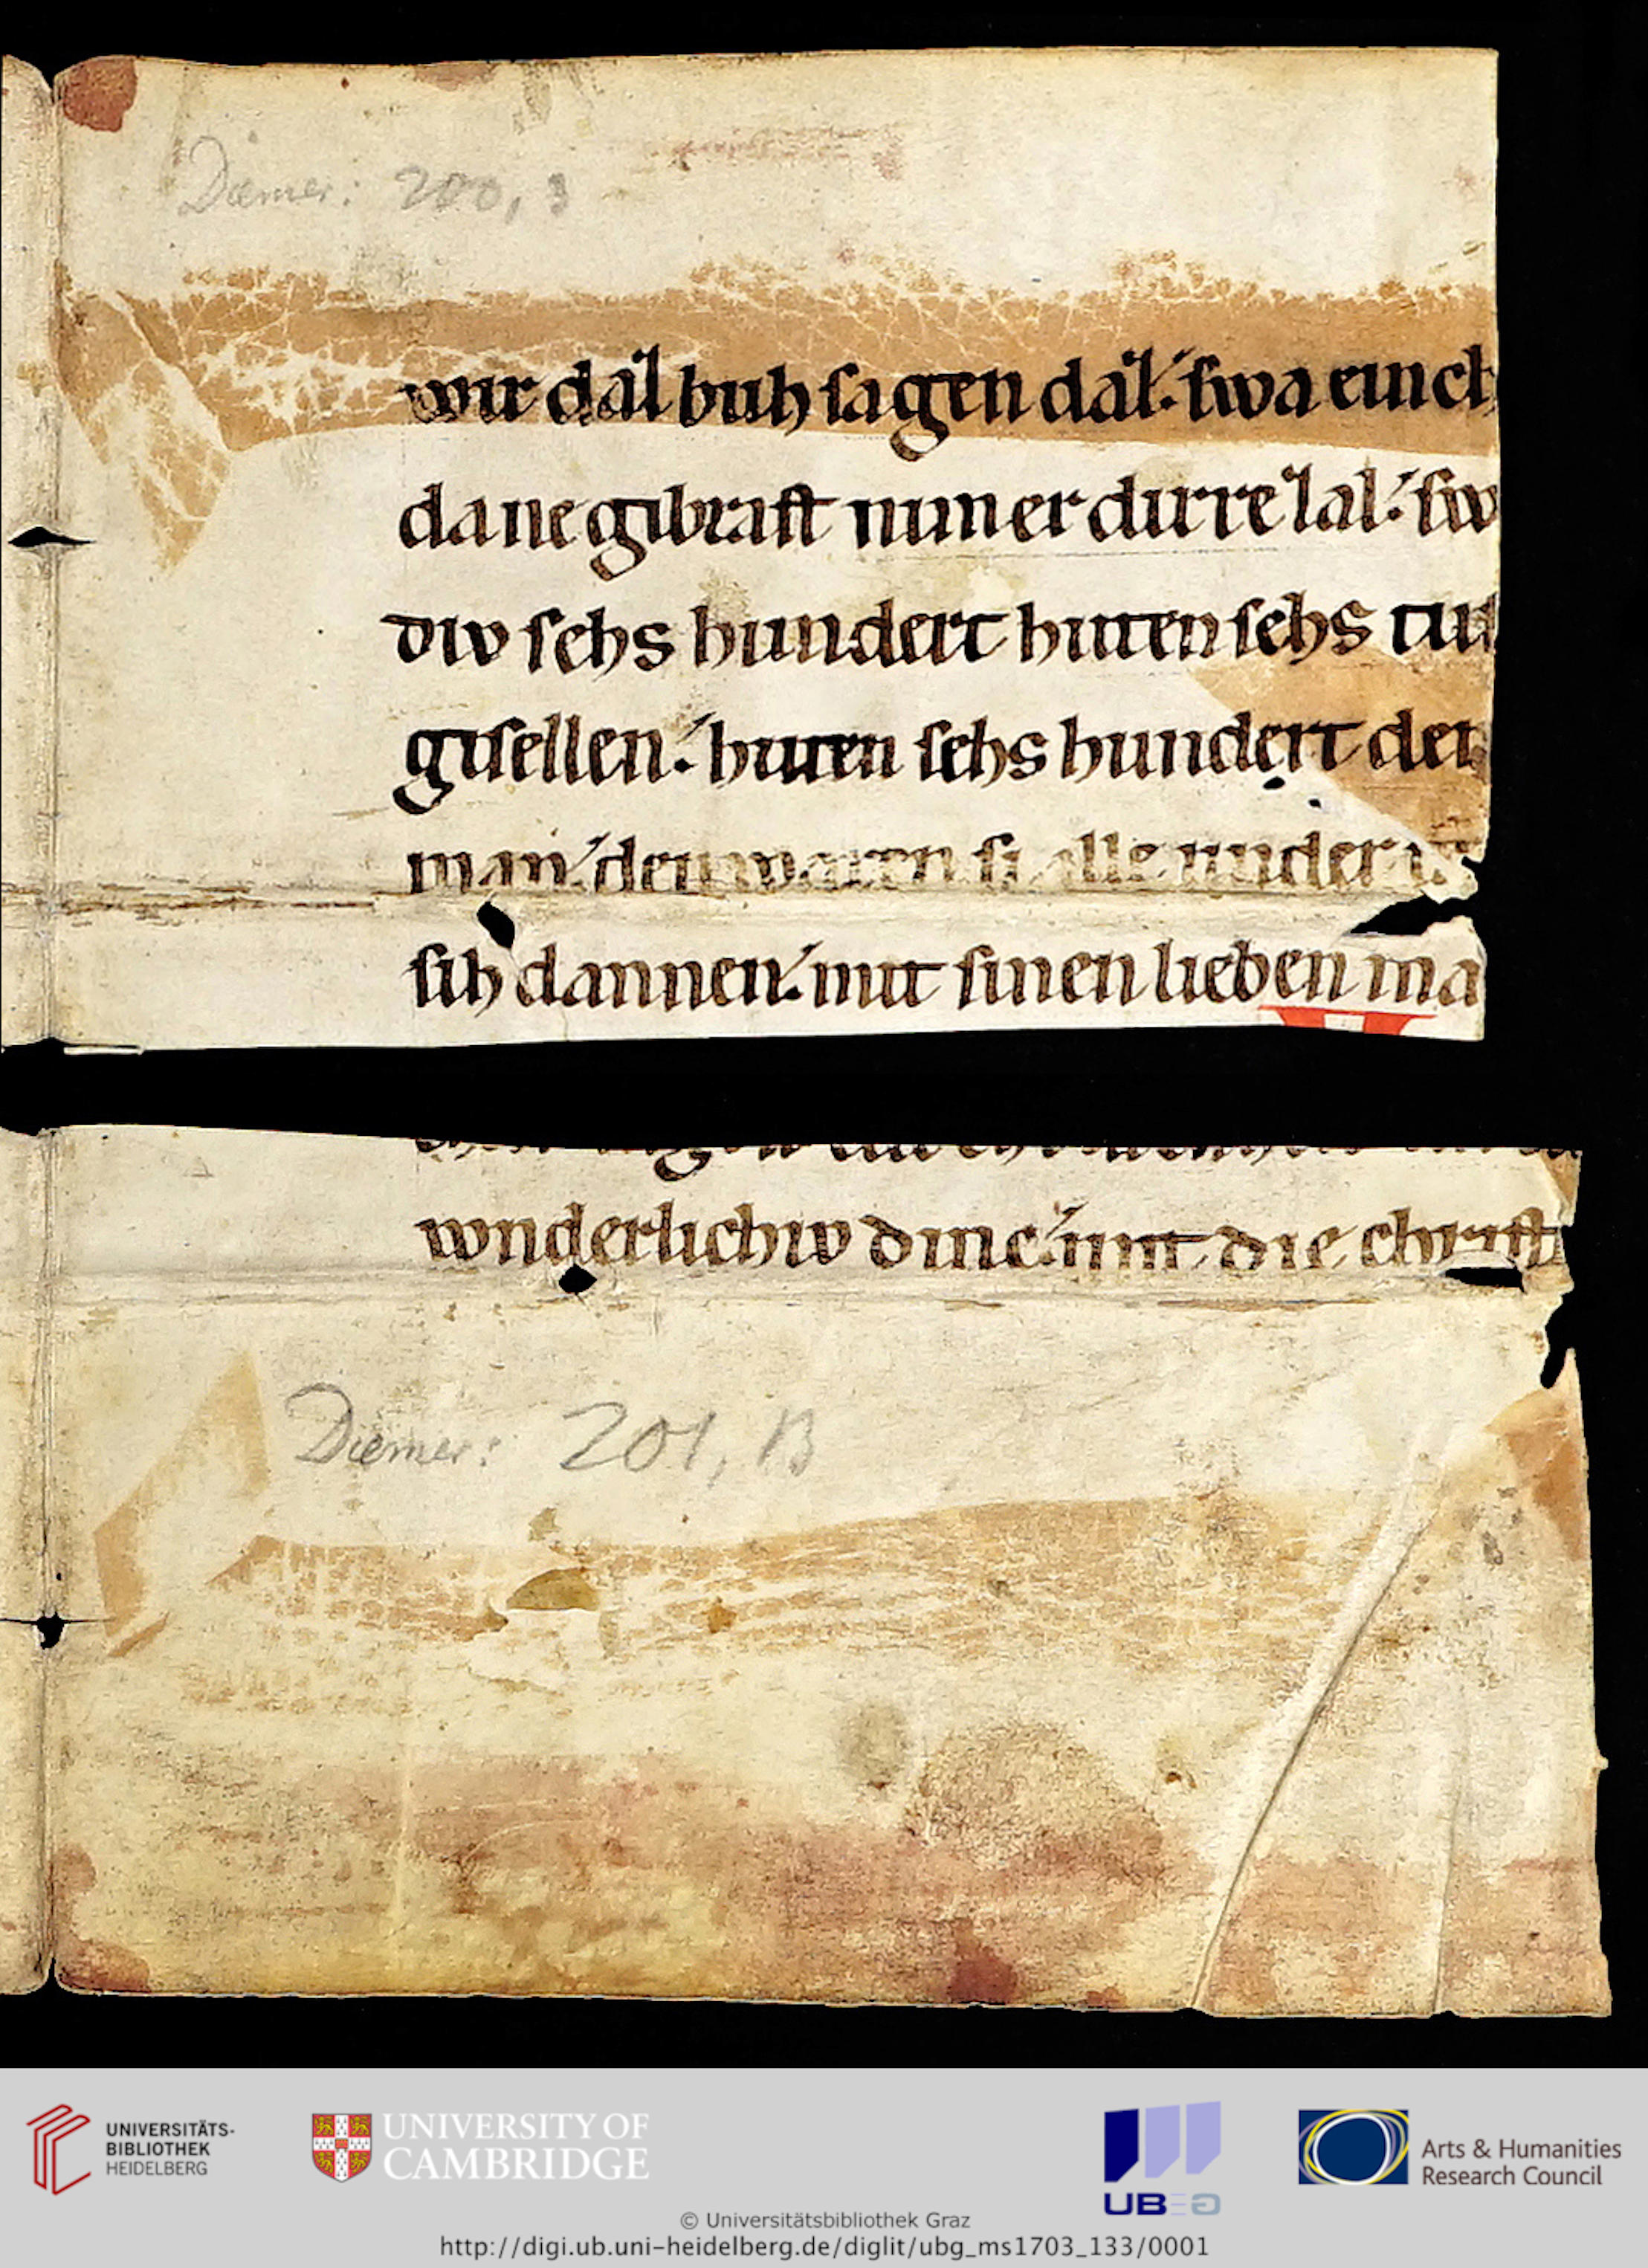 Diemer: 200, 3
wir daʒ buh sagen daʒ. swa ein ch
da ne gibrast nimer dirre ʒal. sw
diw sehs hundert hiten sehs tu
gisellen. hiten sehs hundert der
man. den waren si alle under
sih dannen. mit sinen lieben ma
wnderlichiv dinc. mit die christ
Diemer: 201, 13
UNIVERSITÄTS-
BIBLIOTHEK
HEIDELBERG
UNIVERSITY OF
CAMBRIDGE
UBEG
Arts & Humanities
Research Council
© Universitätsbibliothek Graz
http://digi.ub.uni-heidelberg.de/diglit/ubg_ms1703_133/0001